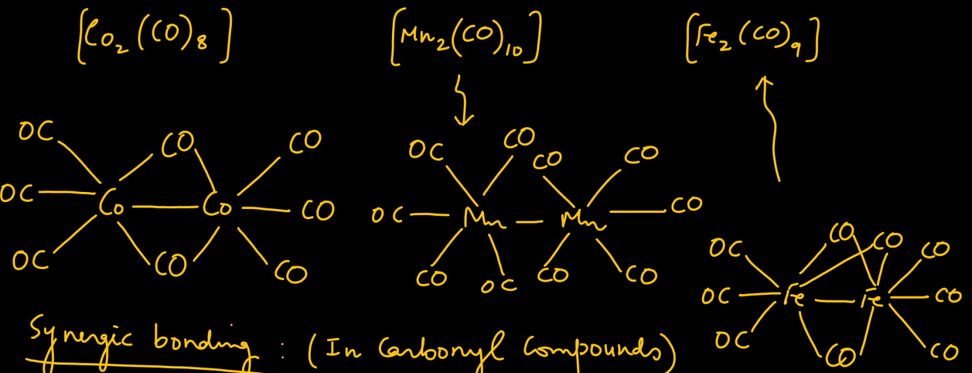 [Co₂(CO)₈] [Mn₂(CO)₁₀] [Fe₂(CO)₉]
OC CO CO
OC Co Co CO
OC CO CO
OC CO CO CO
OC Mn Mn CO
CO OC CO CO
OC CO CO CO
OC Fe Fe CO
OC CO CO
Synergic bonding : (In Carbonyl Compounds)